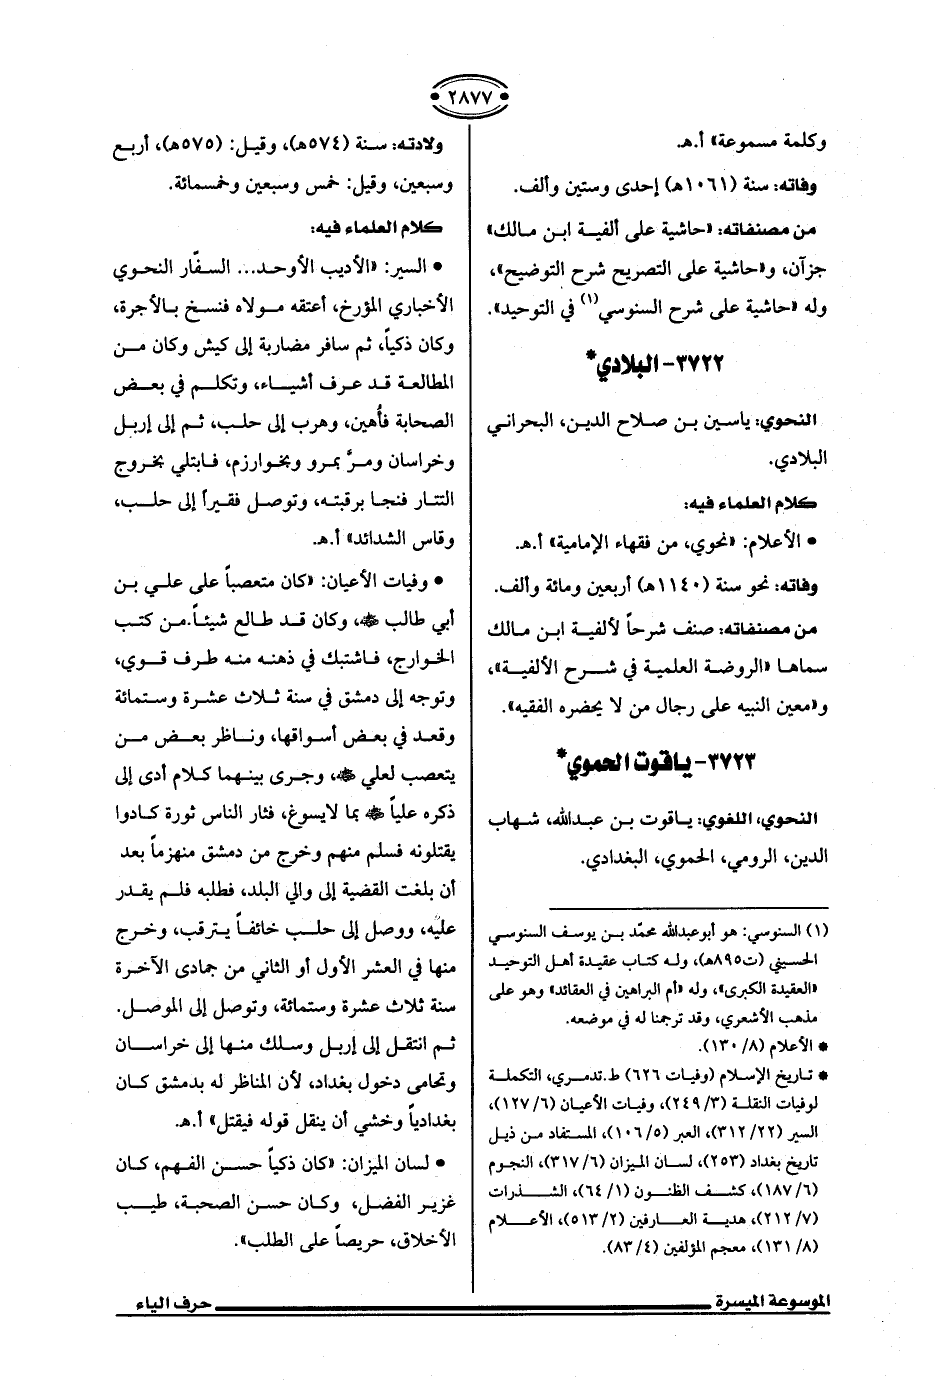 ٢٨٧٧
وكلمة مسموعة» أ.هـ.
وفاته: سنة (١٠٦١هـ) إحدى وستين وألف.
من مصنفاته: «حاشية على ألفية ابن مالك»
جزآن، و«حاشية على التصريح شرح التوضيح»،
وله «حاشية على شرح السنوسي(١) في التوحيد».
٣٧٢٢- البلادي*
النحوي: ياسين بن صلاح الدين، البحراني
البلادي.
كلام العلماء فيه:
• الأعلام: «نحوي، من فقهاء الإمامية» أ.هـ.
وفاته: نحو سنة (١١٤٠هـ) أربعين ومائة وألف.
من مصنفاته: صنف شرحاً لألفية ابن مالك
سماها «الروضة العلمية في شرح الألفية»،
و«معين النبيه على رجال من لا يحضره الفقيه».
٣٧٢٣- ياقوت الحموي*
النحوي، اللغوي: ياقوت بن عبدالله، شهاب
الدين، الرومي، الحموي، البغدادي.
(١) السنوسي: هو أبوعبدالله محمّد بن يوسف السنوسي
الحسيني (ت٨٩٥هـ)، وله كتاب عقيدة أهل التوحيد
«العقيدة الكبرى»، وله «أم البراهين في العقائد» وهو على
مذهب الأشعري، وقد ترجمنا له في موضعه.
* الأعلام (٨/ ١٣٠).
* تاريخ الإسلام (وفيات ٦٢٦) ط.تدمري، التكملة
لوفيات النقلة (٣/ ٢٤٩)، وفيات الأعيان (٦/ ١٢٧)،
السير (٢٢/ ٣١٢)، العبر (٥/ ١٠٦)، المستفاد من ذيل
تاريخ بغداد (٢٥٣)، لسان الميزان (٦/ ٣١٧)، النجوم
(٦/ ١٨٧)، كشف الظنون (١/ ٦٤)، الشذرات
(٧/ ٢١٢)، هدية العارفين (٢/ ٥١٣)، الأعلام
(٨/ ١٣١)، معجم المؤلفين (٤/ ٨٣).
ولادته: سنة (٥٧٤هـ)، وقيل: (٥٧٥هـ)، أربع
وسبعين، وقيل: خمس وسبعين وخمسمائة.
كلام العلماء فيه:
• السير: «الأديب الأوحد... السفّار النحوي
الأخباري المؤرخ، أعتقه مولاه فنسخ بالأجرة،
وكان ذكياً، ثم سافر مضاربة إلى كيش وكان من
المطالعة قد عرف أشياء، وتكلم في بعض
الصحابة فأُهين، وهرب إلى حلب، ثم إلى إربل
وخراسان ومرَّ بمرو وبخوارزم، فابتلي بخروج
التتار فنجا برقبته، وتوصل فقيراً إلى حلب،
وقاس الشدائد» أ.هـ.
• وفيات الأعيان: «كان متعصباً على علي بن
أبي طالب ﵁، وكان قد طالع شيئاً.من كتب
الخوارج، فاشتبك في ذهنه منه طرف قوي،
وتوجه إلى دمشق في سنة ثلاث عشرة وستمائة
وقعد في بعض أسواقها، وناظر بعض من
يتعصب لعلي ﵁، وجرى بينهما كلام أدى إلى
ذكره علياً ﵁ بما لايسوغ، فثار الناس ثورة كادوا
يقتلونه فسلم منهم وخرج من دمشق منهزماً بعد
أن بلغت القضية إلى والي البلد، فطلبه فلم يقدر
عليه، ووصل إلى حلب خائفاً يترقب، وخرج
منها في العشر الأول أو الثاني من جمادى الآخرة
سنة ثلاث عشرة وستمائة، وتوصل إلى الموصل.
ثم انتقل إلى إربل وسلك منها إلى خراسان
وتحامى دخول بغداد، لأن المناظر له بدمشق كان
بغدادياً وخشي أن ينقل قوله فيقتل» أ.هـ.
• لسان الميزان: «كان ذكياً حسن الفهم، كان
غزير الفضل، وكان حسن الصحبة، طيب
الأخلاق، حريصاً على الطلب».
الموسوعة الميسرة
حرف الياء